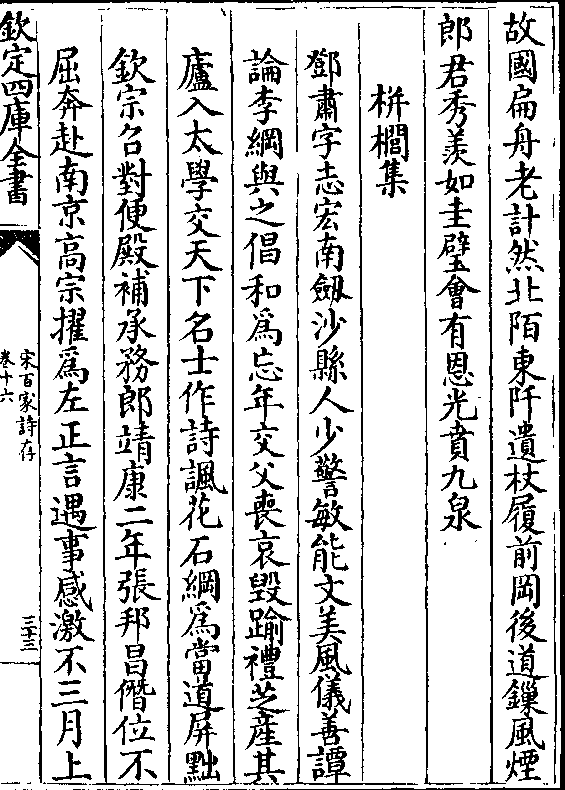 故國扁舟老計然北陌東阡遺杖履前岡後道鏁風煙
郎君秀羡如圭璧會有恩光賁九泉
栟櫚集
鄧肅字志宏南劔沙縣人少警敏能文美風儀善譚
論李綱與之倡和為忘年交父喪哀毀踰禮芝產其
廬入太學交天下名士作詩諷花石綱為當道屏黜
欽宗召對便殿補承務郎靖康二年張邦昌僭位不
屈奔赴南京高宗擢為左正言遇事感激不三月上
欽定四庫全書
宋百家詩存
卷十六
三十三